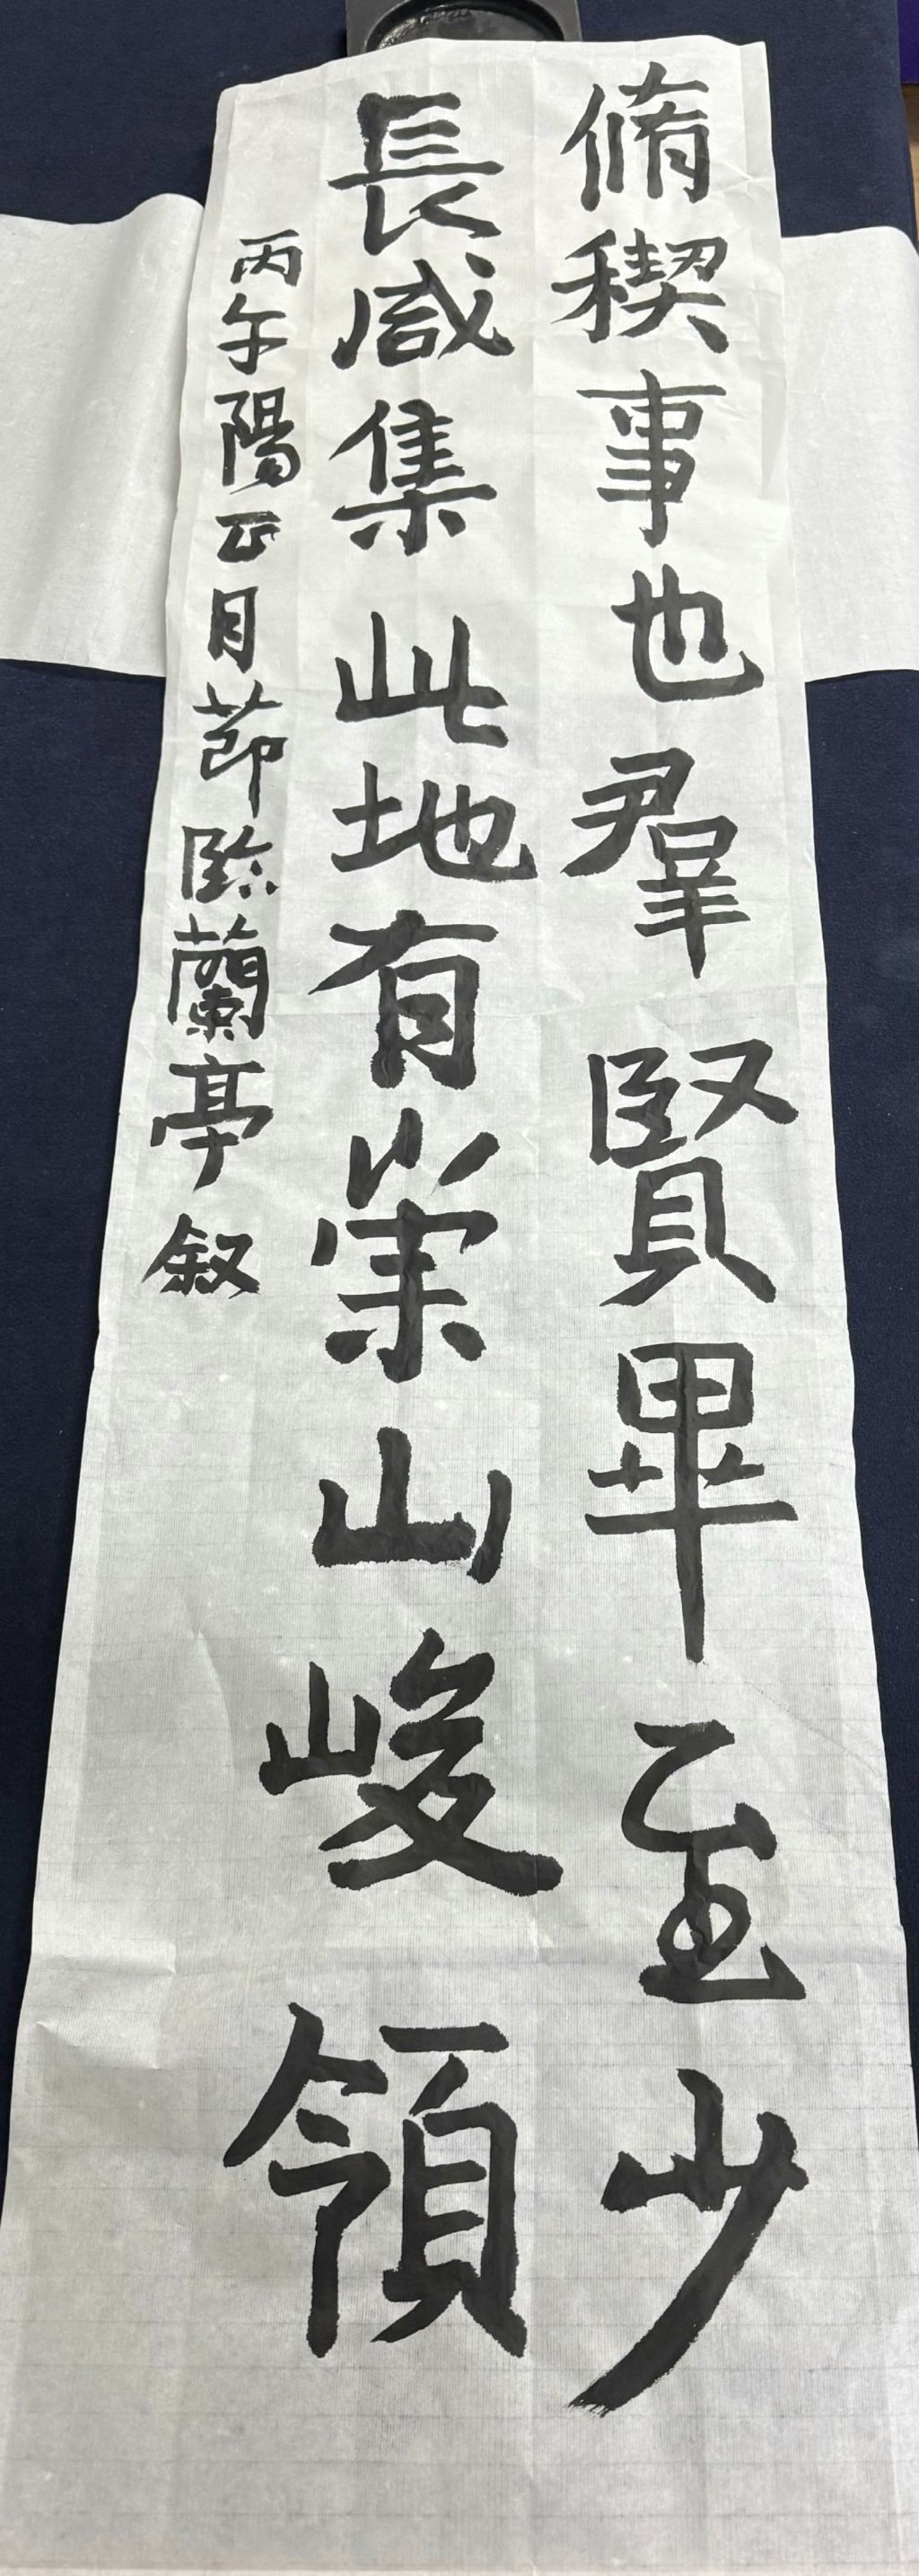 脩稧事也羣賢畢至少
長咸集此地有崇山峻領
丙午陽正月節臨蘭亭叙